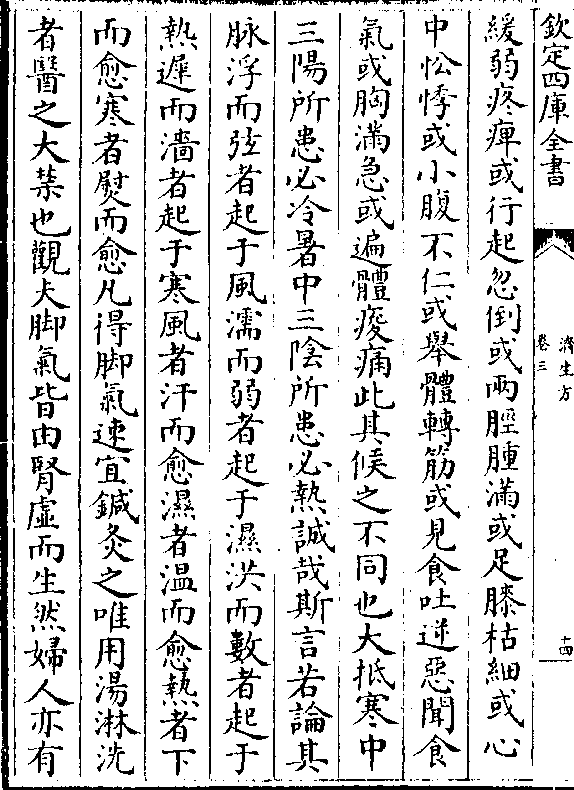 欽定四庫全書
濟生方
卷三
十四
緩弱疼痺或行起忽倒或兩脛腫滿或足膝枯細或心
中忪悸或小腹不仁或舉體轉筋或見食吐逆惡聞食
氣或胸滿急或遍體痠痛此其候之不同也大抵寒中
三陽所患必冷暑中三陰所患必熱誠哉斯言若論其
脉浮而弦者起于風濡而弱者起于濕洪而數者起于
熱遲而濇者起于寒風者汗而愈濕者温而愈熱者下
而愈寒者熨而愈凡得脚氣速宜鍼灸之唯用湯淋洗
者醫之大禁也觀夫脚氣皆由腎虛而生然婦人亦有